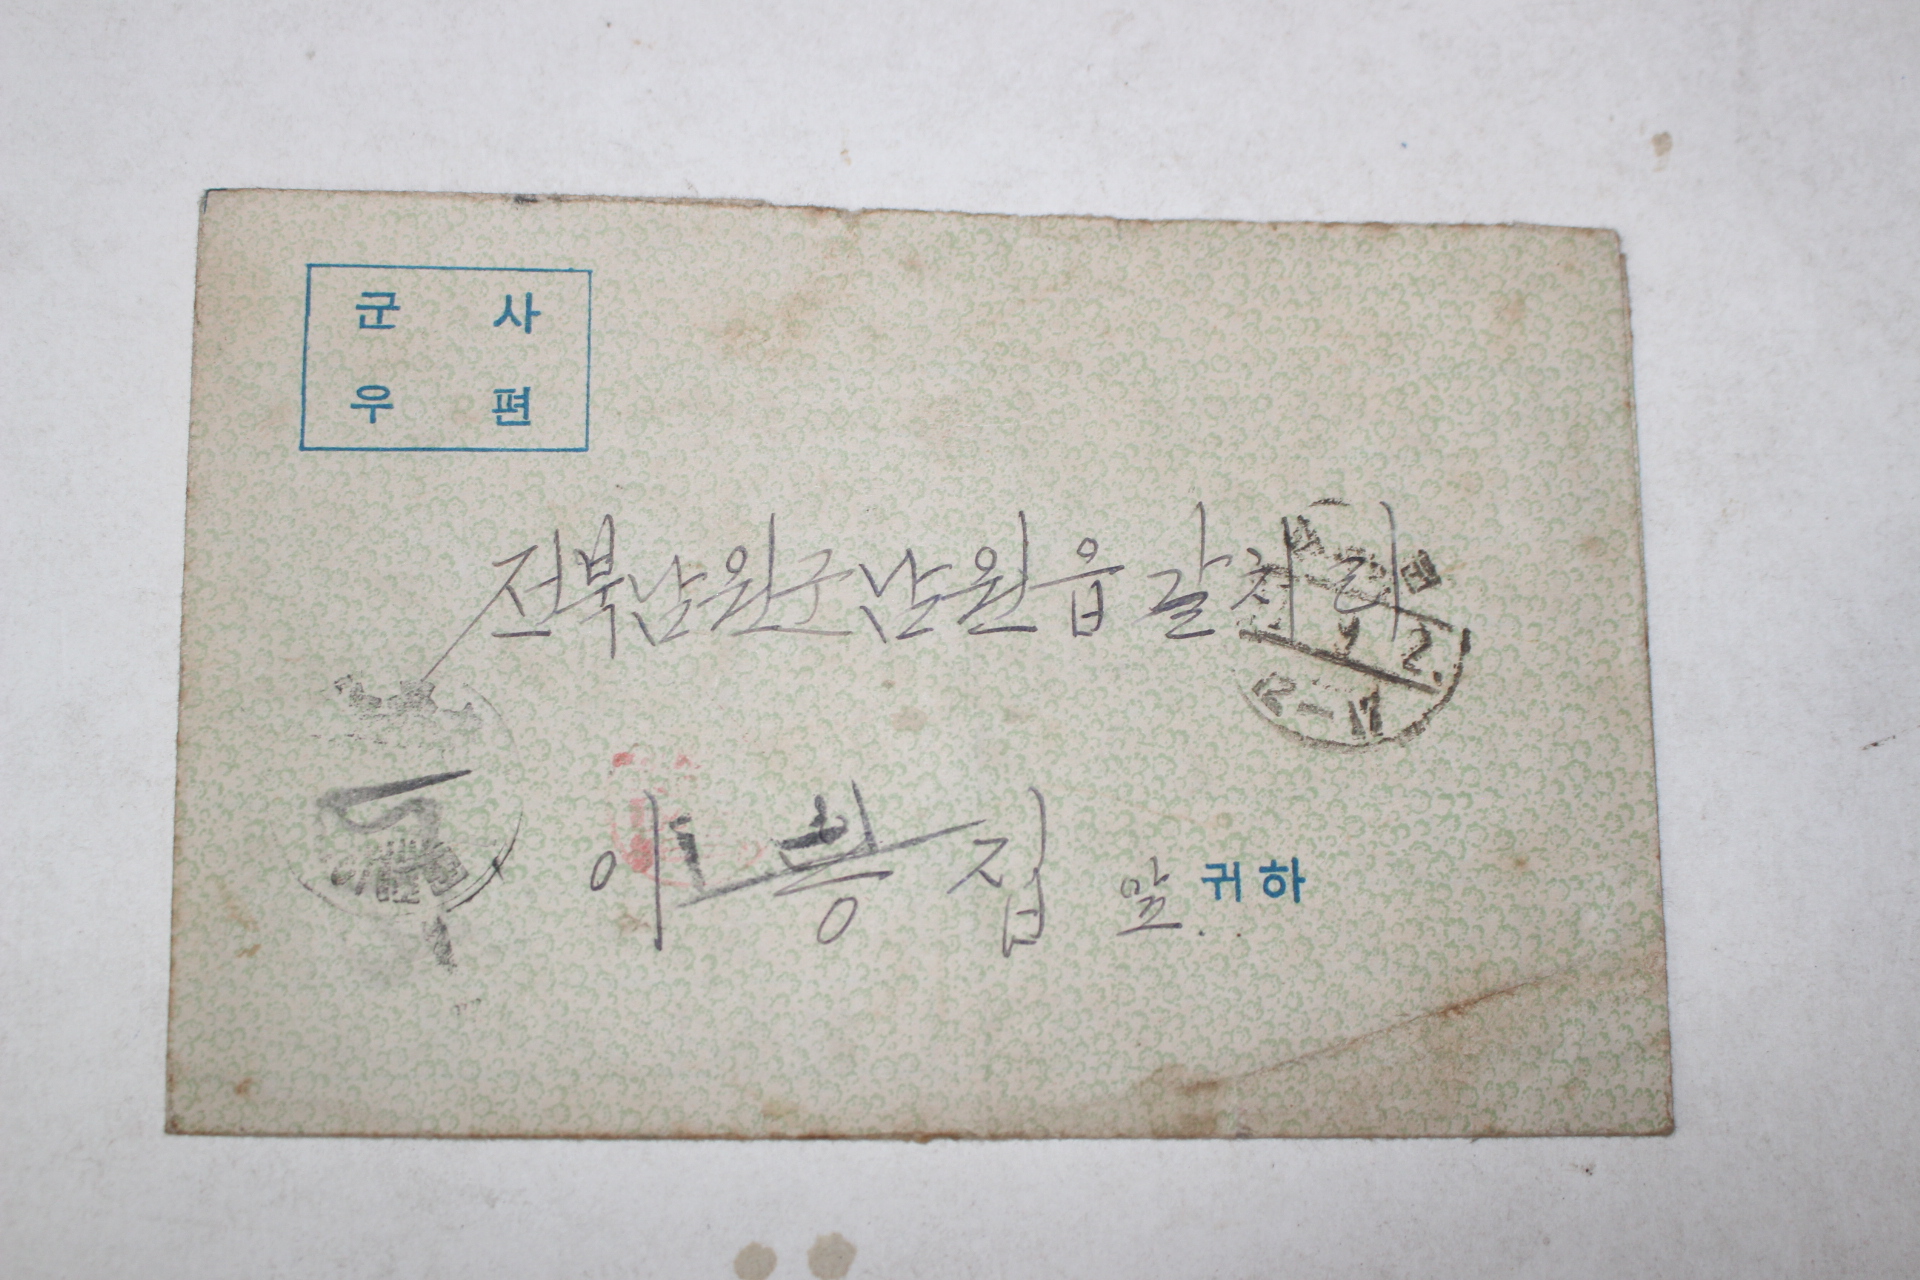 군 사
우 편
전북 남원군 남원읍 갈치리
이 흥 집 앞. 귀하
2
12-17